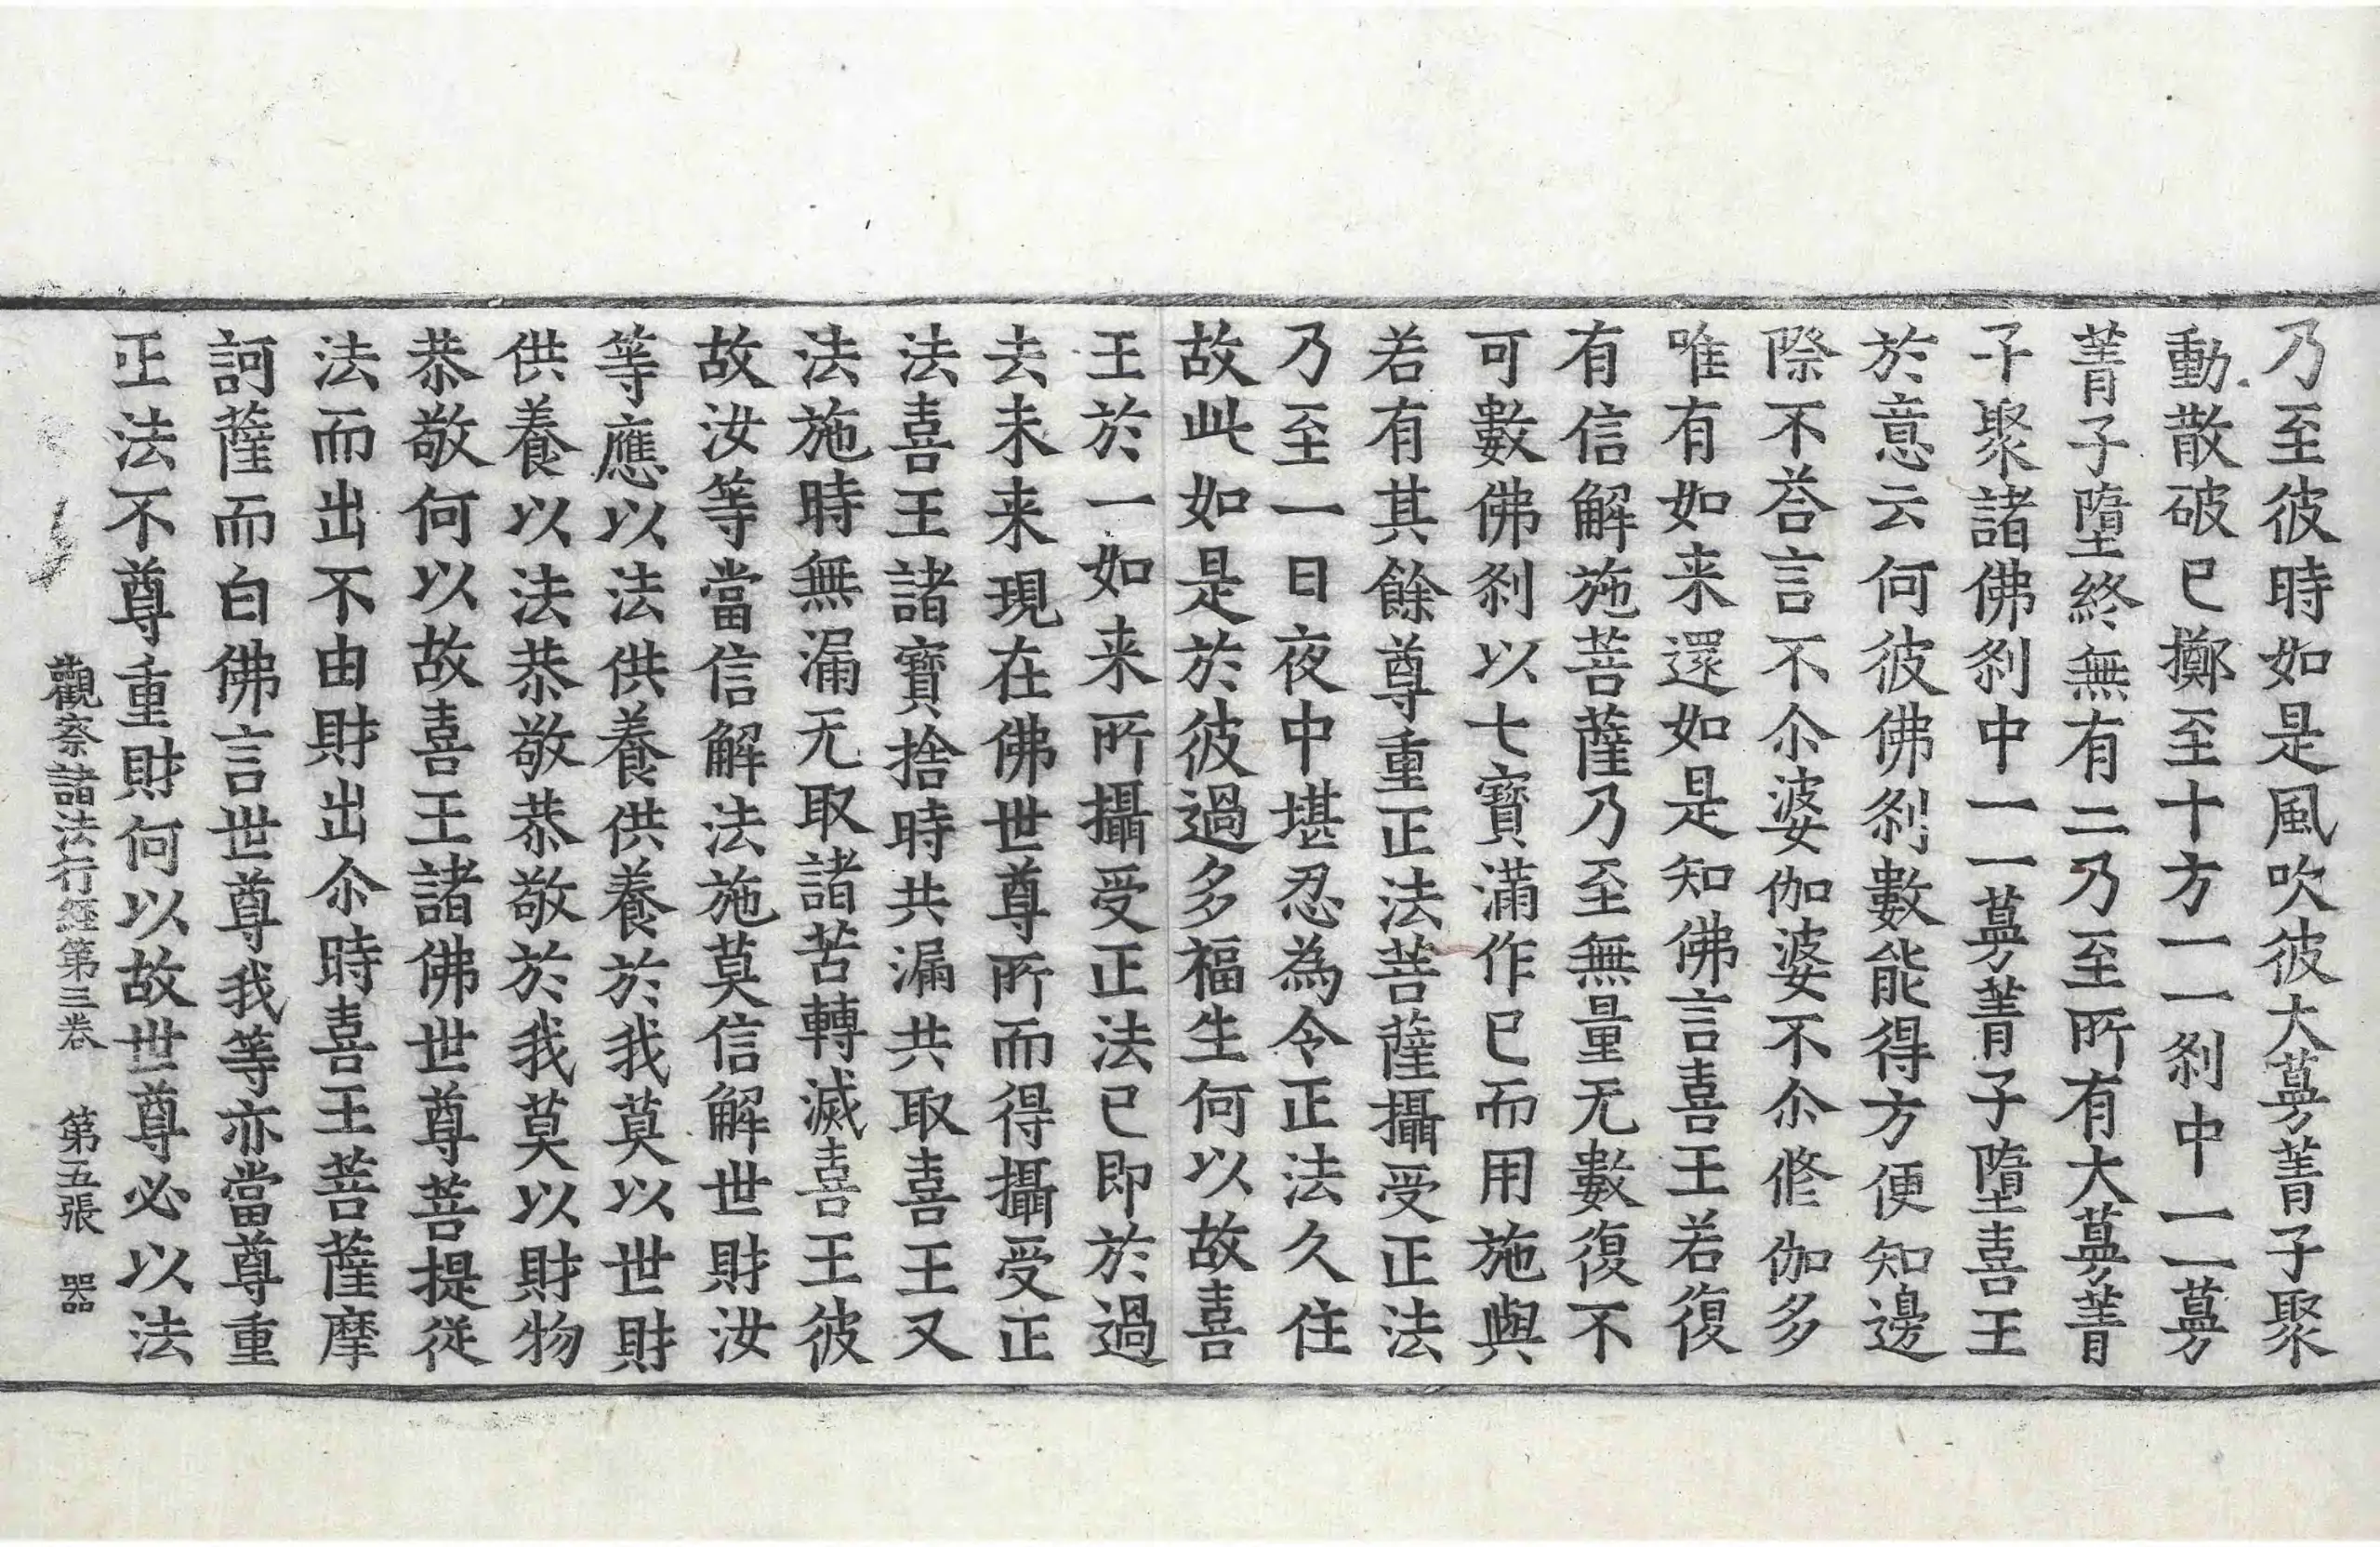 乃至彼時如是風吹彼大蔓菁子聚
動散破已擲至十方一一刹中一一蔓
菁子墮終無有二乃至所有大蔓菁
子聚諸佛刹中一一蔓菁子墮喜王
於意云何彼佛刹數能得方便知邊
際不荅言不尒婆伽婆不尒修伽多
唯有如来還如是知佛言喜王若復
有信解施菩薩乃至無量无數復不
可數佛刹以七寶滿作已而用施與
若有其餘尊重正法菩薩攝受正法
乃至一日夜中堪忍為令正法久住
故此如是於彼過多福生何以故喜
王於一如来所攝受正法已即於過
去未来現在佛世尊所而得攝受正
法喜王諸寶捨時共漏共取喜王又
法施時無漏无取諸苦轉滅喜王彼
故汝等當信解法施莫信解世財汝
等應以法供養供養於我莫以世財
供養以法恭敬恭敬於我莫以財物
恭敬何以故喜王諸佛世尊菩提從
法而出不由財出尒時喜王菩薩摩
訶薩而白佛言世尊我等亦當尊重
正法不尊重財何以故世尊必以法
觀察諸法行經第三卷 第五張 器